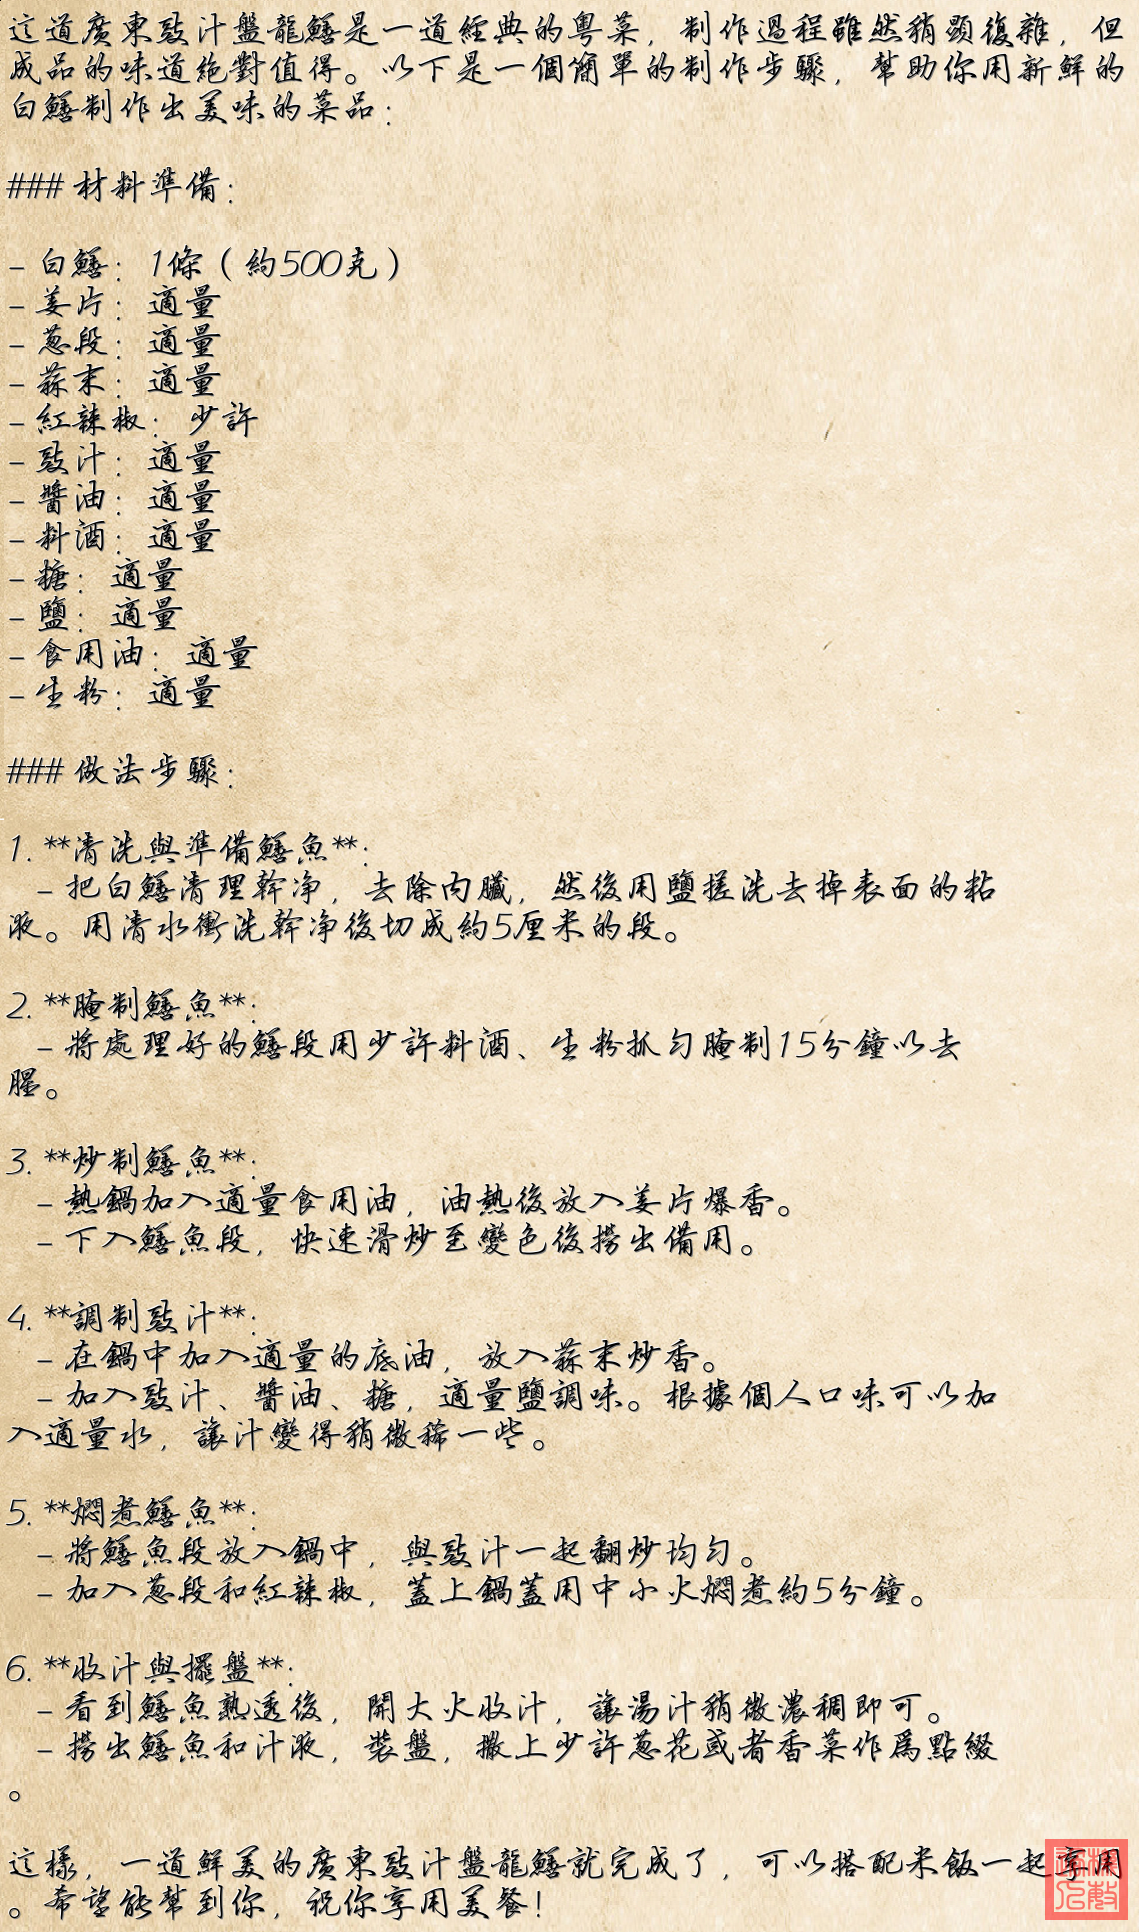 這道廣東豉汁盤龍鱔是一道經典的粤菜，制作過程雖然稍顯復雜，但
成品的味道絶對值得。以下是一個簡單的制作步驟，幫助你用新鮮的
白鱔制作出美味的菜品：
### 材料準備：
- 白鱔：1條（約500克）
- 姜片：適量
- 葱段：適量
- 蒜末：適量
- 紅辣椒：少許
- 豉汁：適量
- 醬油：適量
- 料酒：適量
- 糖：適量
- 鹽：適量
- 食用油：適量
- 生粉：適量
### 做法步驟：
1. **清洗與準備鱔魚**：
- 把白鱔清理幹净，去除内臟，然後用鹽搓洗去掉表面的粘
液。用清水衝洗幹净後切成約5厘米的段。
2. **腌制鱔魚**：
- 將處理好的鱔段用少許料酒、生粉抓匀腌制15分鐘以去
腥。
3. **炒制鱔魚**：
- 熱鍋加入適量食用油，油熱後放入姜片爆香。
- 下入鱔魚段，快速滑炒至變色後撈出備用。
4. **調制豉汁**：
- 在鍋中加入適量的底油，放入蒜末炒香。
- 加入豉汁、醬油、糖，適量鹽調味。根據個人口味可以加
入適量水，讓汁變得稍微稀一些。
5. **燜煮鱔魚**：
- 將鱔魚段放入鍋中，與豉汁一起翻炒均匀。
- 加入葱段和紅辣椒，蓋上鍋蓋用中小火燜煮約5分鐘。
6. **收汁與擺盤**：
- 看到鱔魚熟透後，開大火收汁，讓湯汁稍微濃稠即可。
- 撈出鱔魚和汁液，裝盤，撒上少許葱花或者香菜作爲點綴
。
這樣，一道鮮美的廣東豉汁盤龍鱔就完成了，可以搭配米飯一起享用
。希望能幫到你，祝你享用美餐！